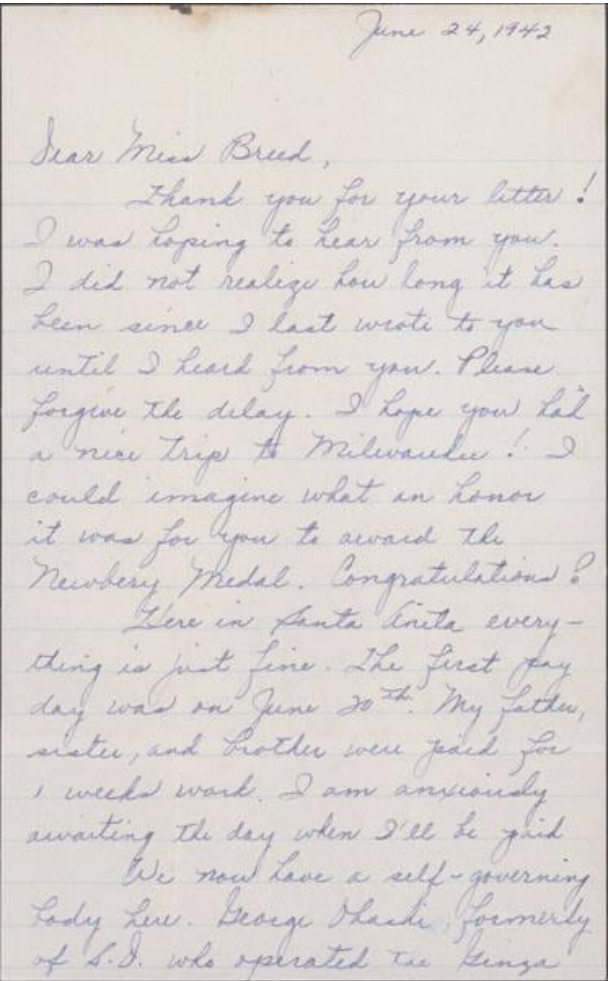 June 24, 1942
Dear Miss Breed,
Thank you for your letter!
I was hoping to hear from you.
I did not realize how long it has
been since I last wrote to you
until I heard from you. Please
forgive the delay. I hope you had
a nice trip to Milwaukee! I
could imagine what an honor
it was for you to award the
Newbery Medal. Congratulations!
Here in Santa Anita every-
thing is just fine. The first pay
day was on June 20th. My father,
sister, and brother were paid for
1 weeks work. I am anxiously
awaiting the day when I'll be paid
We now have a self-governing
body here. George Ohashi, formerly
of S.D. who operated the Ginza